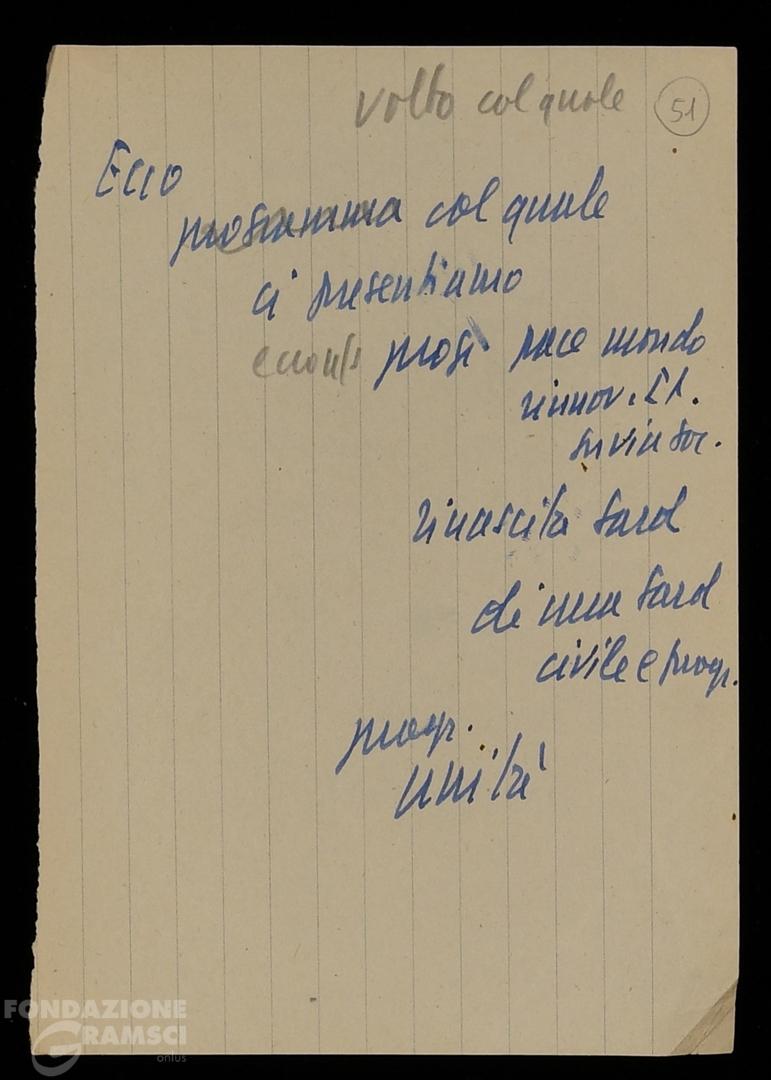 volto col quale
51
Ecco
programma col quale
ci presentiamo
progr pace mondo
rinnov. It.
su via soc.
rinascita Sard
di una Sard
civile e progr.
progr.
unità
FONDAZIONE
GRAMSCI
onlus